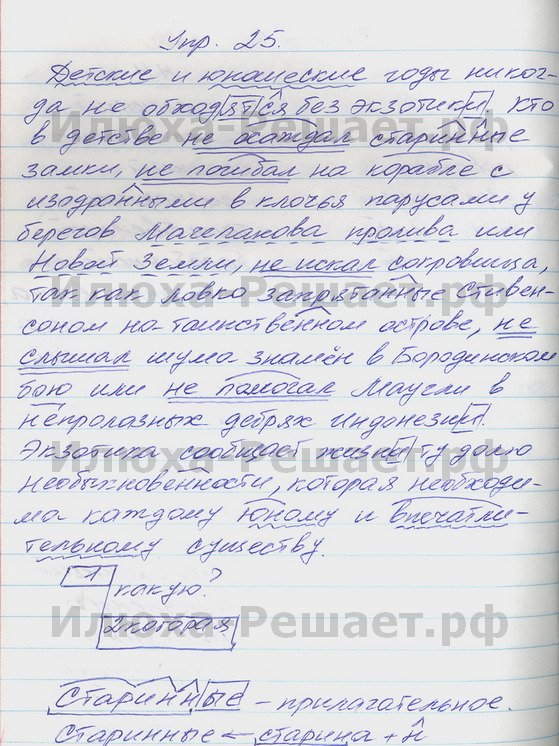 Упр. 25.
Детские и юношеские годы никог-
да не обходятся без экзотики. Кто
в детстве не осаждал старинные
замки, не погибал на корабле с
изодранными в клочья парусами у
берегов Магеланова пролива или
Новой Земли, не искал сокровища,
так как ловко запрятанные Стивен-
соном на таинственном острове, не
слышал шума знамён в Бородинском
бою или не помогал Маугли в
непролазных дебрях Индонезии.
Экзотика сообщает жизни ту долю
необыкновенности, которая необходи-
ма каждому юному и впечатли-
тельному существу.
1
какую?
2 которая
Старинные – прилагательное.
Старинные ← старина + н
Илюха-Решает.рф
Илюха-Решает.рф
Илюха-Решает.рф
Илюха-Решает.рф